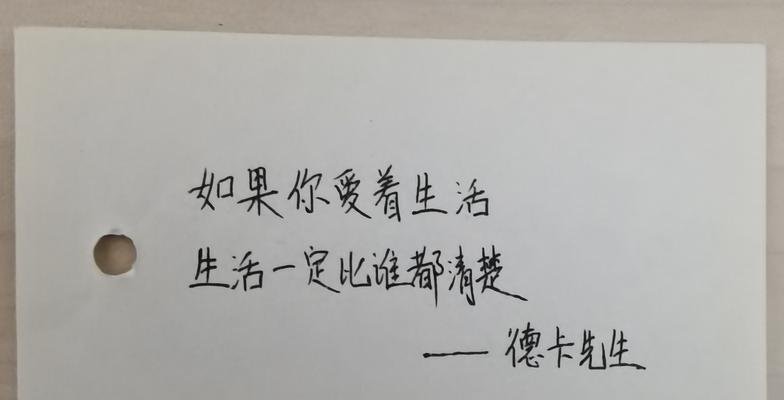 如果你爱着生活
生活一定比谁都清楚
——德卡先生